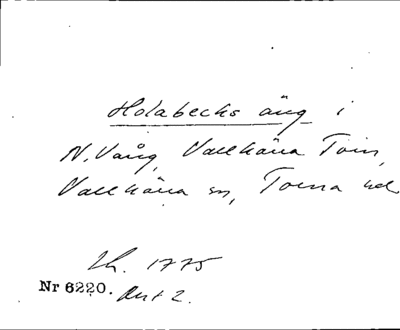 Holabecks äng i
N. Vång, Vallkärra Town,
Vallkärra sn, Torna hd
Lh. 1775
Nr 6220. Akt 2.